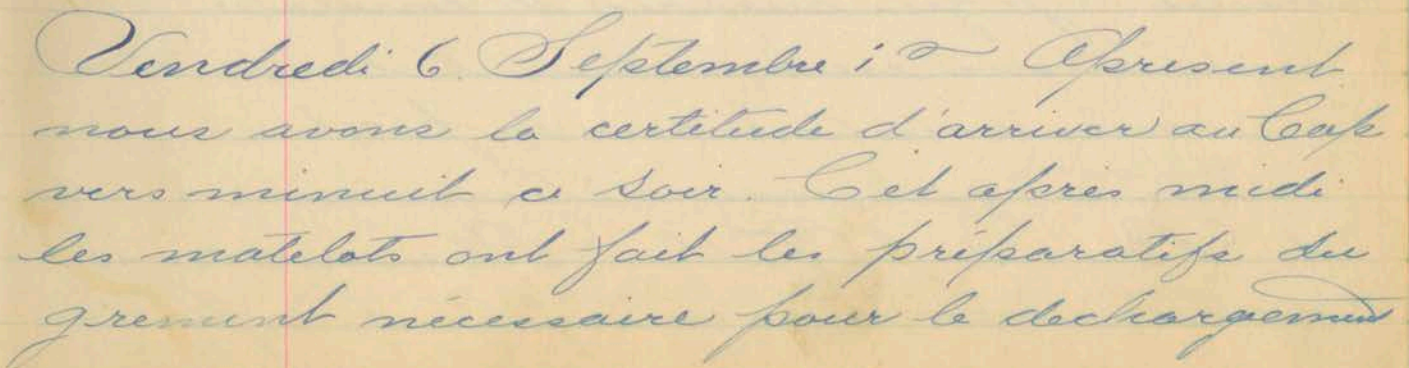 Vendredi 6 Septembre Apresent
nous avons la certitude d'arriver au Cap
vers minuit ce soir. Cet après midi
les matelots ont fait les préparatifs du
grement nécessaire pour le dechargement